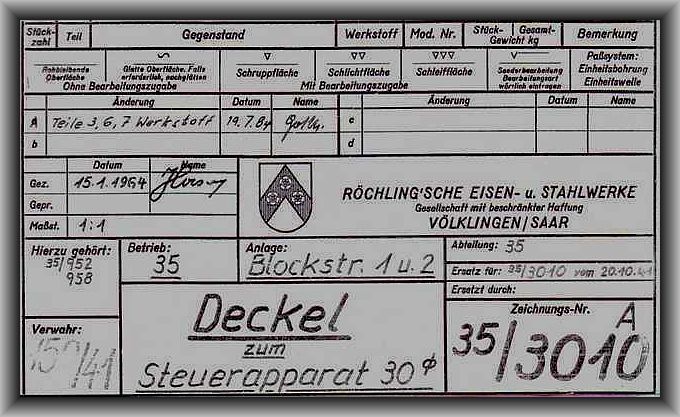 Stück-zahl Teil Gegenstand Werkstoff Mod. Nr. Stück- Gesamt- Gewicht kg Bemerkung
Rohbleibende Oberfläche
Glatte Oberfläche. Falls erforderlich, nachglätten
Ohne Bearbeitungszugabe
▽ Schruppfläche
▽▽ Schlichtfläche
▽▽▽ Schleiffläche
Mit Bearbeitungszugabe
Sonderbearbeitung
Bearbeitungsart
wörtlich eintragen
Paßsystem:
Einheitsbohrung
Einheitswelle
Änderung Datum Name Änderung Datum Name
A Teile 3, 6, 7 Werkstoff 19.7.84 c
b d
Datum Name
Gez. 15.1.1964
Gepr.
Maßst. 1:1
RÖCHLING'SCHE EISEN- u. STAHLWERKE
Gesellschaft mit beschränkter Haftung
VÖLKLINGEN/SAAR
Hierzu gehört:
35/952
958
Betrieb:
35
Anlage:
Blockstr. 1 u. 2
Abteilung: 35
Ersatz für: 35/3010 vom 20.10.41
Ersetzt durch:
Verwahr:
150/41
Deckel
zum
Steuerapparat 30⌀
Zeichnungs-Nr.
35/3010 A